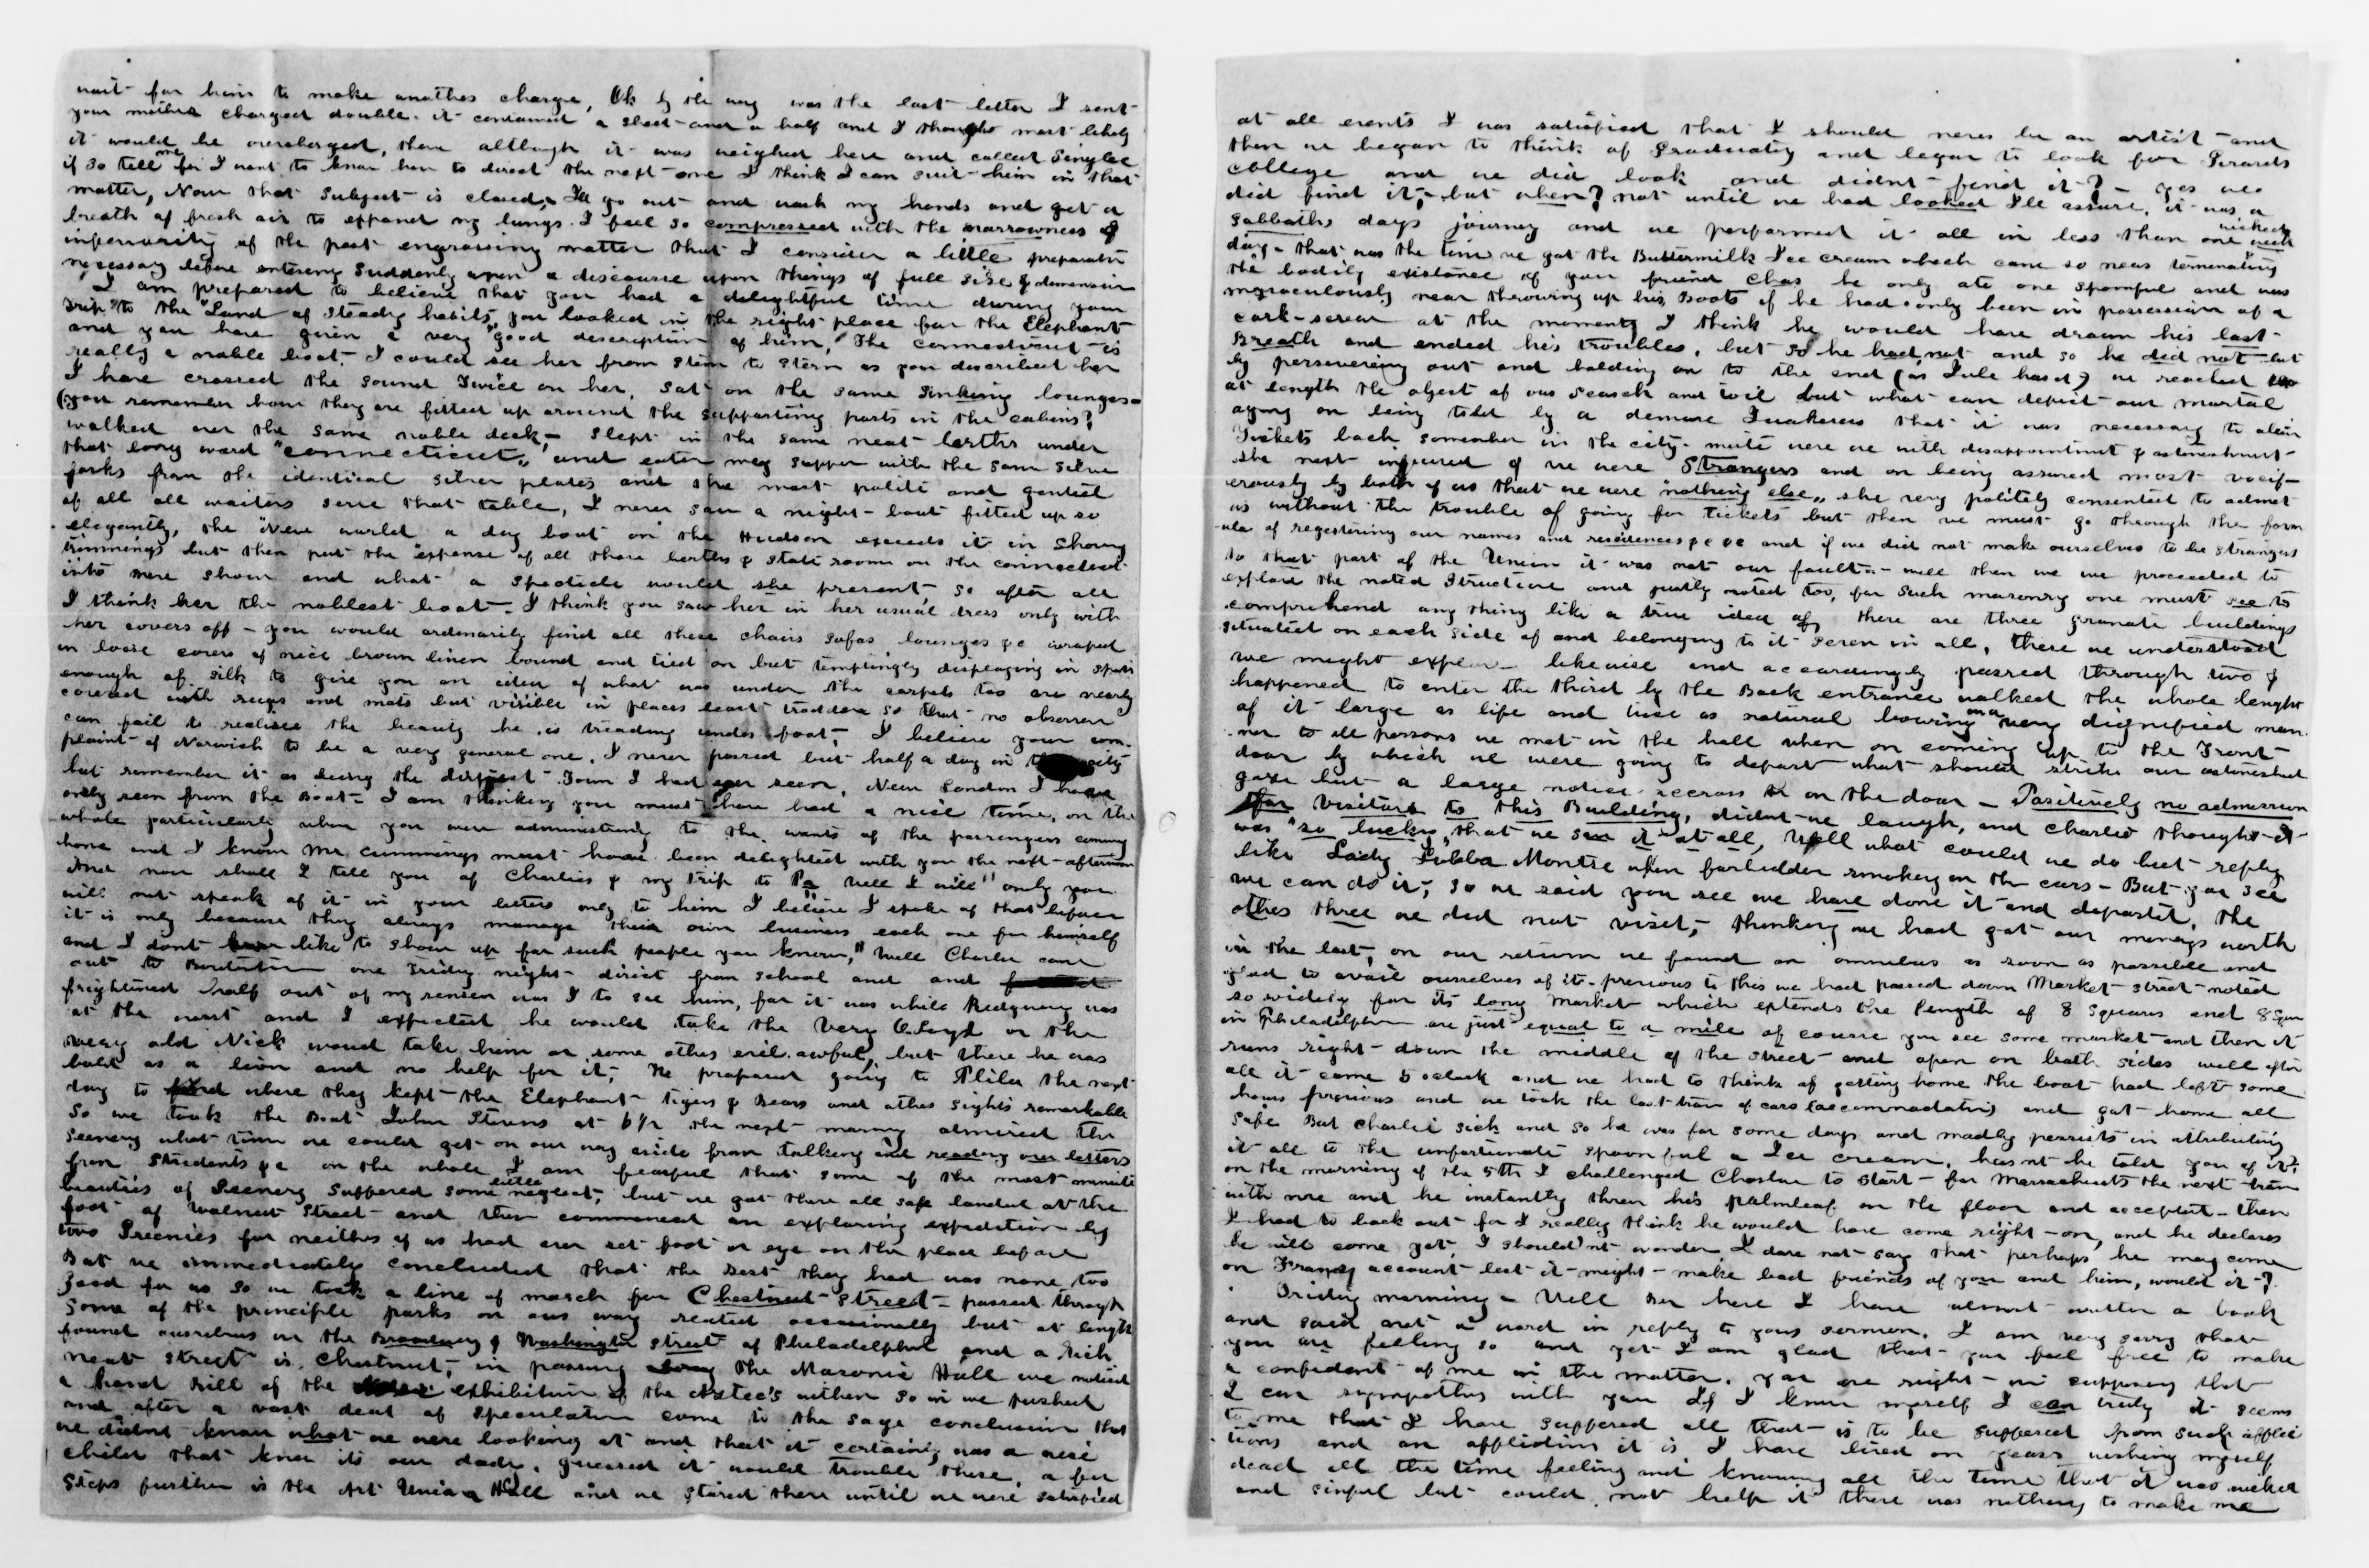 wait for him to make another charge, Oh by the way was the last letter I sent
your mother charged double. it contained a sheet and a half and I thought most likely
it would be overcharged, there although it was weighed here and called single
if so tell me for I want to know how to direct the next one I think I can suit him in that
matter, Now that subject is closed, I'll go out and wash my hands and get a
breath of fresh air to expand my lungs. I feel so compressed with the narrowness &
inferiority of the past engrossing matter that I consider a little preparation
necessary before entering suddenly upon a discourse upon things of full size & dimension
I am prepared to believe that you had a delightful time during your
trip to the "Land of steady habits," you looked in the right place for the Elephant
and you have given a very good description of him, "The Connecticut" is
really a noble boat - I could see her from stem to stern as you described her
I have crossed the sound twice on her, sat on the same sinking lounges -
(you remember how they are fitted up around the supporting parts in the cabins?
walked over the same noble deck - slept in the same neat berths under
that long word "Connecticut," and eaten my supper with the same silver
forks from the identical silver plates and the most polite and genteel
of all all waiters serve that table, I never saw a night-boat fitted up so
elegantly, the "New world a day boat on the Hudson exceeds it in showy
trimmings but then put the expense of all those berths & state rooms on the connecticut
into mere show and what a spectacle would she present, so after all
I think her the noblest boat - I think you saw her in her usual dress only with
her covers off - you would ordinarily find all these chairs sofas, lounges &c wraped
in loose covers of nice brown linen bound and tied on but temptingly displaying in spots
enough of silk to give you an idea of what was under the carpets too are nearly
covered with rugs and mats but visible in places least trodden so that no observer
can fail to realise the beauty he is treading under foot, I believe your com-
plaint of Norwich to be a very general one, I never passed but half a day in the city
but remember it as being the dirtyest Town I had ever seen, New London I have
only seen from the Boat - I am thinking you must have had a nice time, on the
whole particularly when you were administering to the wants of the passengers coming
home and I know Mr Cummings must have been delighted with you the next afternoon
And now shall I tell you of Charlies & my trip to Pa Well I will" only you
will not speak of it in your letters only to him I believe I spoke of that before
it is only because they always manage their own business each one for himself
and I dont like to show up for such people you know," Well Charlie came
out to Bordentown one Friday night direct from school and and
frightened half out of my senses was I to see him, for it was while Ridgway was
at the west and I expected he would take the Very or the
very old Nick would take him or some other evil awful, but there he was
bold as a lion and no help for it, He proposed going to Phila the next
day to find where they kept the Elephant tigers & Bears and other sights remarkable
So we took the Boat John Stevens at 6½ the next morning admired the
scenery what time we could get on our way aside from talking and reading our letters
from students &c on the whole I am fearful that some of the most minute
beauties of Scenery suffered some little neglect, but we got there all safe landed at the
foot of Walnut Street and then commenced an exploring expedition by
two Greenies for neither of us had ever set foot or eye on the place before
But we immediately concluded that the best they had was none too
good for us so we took a line of march for Chestnut Street - passed through
some of the principle parks on our way seated occasionally but at length
found ourselves in the Broadway & Washington street of Philadelphia and a rich
neat street is Chestnut, in passing the Masonic Hall we noticed
a hand bill of the exhibition of the Aztec's within so in we pushed
and after a vast deal of speculation came to the sage conclusion that
we didnt know what we were looking at and that it certainly was a wise
child that knew its own dady, guessed it would trouble these, a few
steps further is the Art Union Hall and we stared there until we were satisfied
at all events I was satisfied that I should never be an artist - and
then we began to think of Graduating and began to look for Girards
College and we did look and didnt find it? - yes we
did find it, but when? not until we had looked I'll assure, it was a
Sabbaths days journey and we performed it all in less than one week
day - that was the time we got the Buttermilk Ice cream which came so near terminating
the bodily existance of your friend Chas he only ate one spoonful and was
miraculously near throwing up his Boots if he had only been in possession of a
cork-screw at the moment I think he would have drawn his last
Breath and ended his troubles, but so he had not and so he did not but
by persevering out and holding on to the end (as Jule has it) we reached
at length the object of our search and toil but what can depict our mortal
agony on being told by a demure Quakeress that it was necessary to obtain
Tickets back somewher in the city - mute were we with disappointment & astonishment
she next inquired if we were Strangers and on being assured most vocif-
erously by both of us that we were "nothing else," she very politely consented to admit
us without the trouble of going for tickets but then we must go through the form
ula of registering our names and residences &c &c and if we did not make ourselves to be strangers
to that part of the Union it was not our fault - well then we we proceeded to
explore the noted structure and justly noted too, for such masonry one must see to
comprehend any thing like a true idea of, there are three granate buildings
situated on each side of and belonging to it seven in all, these we understood
we might explore likewise and accordingly passed through two &
happened to enter the third by the Back entrance walked the whole lenght
of it large as life and twice as natural bowing in a very dignified man-
ner to all persons we met in the hall when on coming up to the Front
door by which we were going to depart what should strike our astonished
gaze but a large notice accross on the door - Positively no admission
for Visitors to this Building, didnt we laugh, and Charlie thought it
was "so lucky" that we saw it at all, Well what could we do but reply
like Lady Montre when forbidden smoking in the cars - But you see
we can do it, so we said you see we have done it and departed, The
other three we did not visit, thinking we had got our moneys worth
in the last, on our return we found an omnibus as soon as possible and
glad to avail ourselves of it. previous to this we had passed down Market street noted
so widely for its long market which extends the length of 8 squares and 8 squares
in Philadelphia are just equal to a mile of course you see some market and then it
runs right down the middle of the street and open on both sides well after
all it came 5 oclock and we had to think of getting home the boat had left some
hours previous and we took the last train of cars (accommodation) and got home all
safe But Charlie sick and so he was for some days and madly persists in attributing
it all to the unfortunate spoonful a Ice cream, hasnt he told you of it?
on the morning of the 5th I challenged Charlie to start for Massachusetts the next train
with me and he instantly threw his palmleaf on the floor and accepted - then
I had to back out for I really think he would have come right on, and he declares
he will come yet, I should'nt wonder I dare not say that perhaps he may come
on account lest it might make bad friends of you and him, would it?
Friday morning - Well see here I have almost written a book
and said not a word in reply to your sermon. I am very sorry that
you are feeling so and yet I am glad that you feel free to make
a confident of me in the matter. you are right in supposing that
I can sympathis with you If I know myself I can truly it seems
to me that I have suffered all that is to be suffered from such afflic
tions and an affliction it is I have lived on years wishing myself
dead all the time feeling and knowing all the time that it was wicked
and sinful but could not help it there was nothing to make me